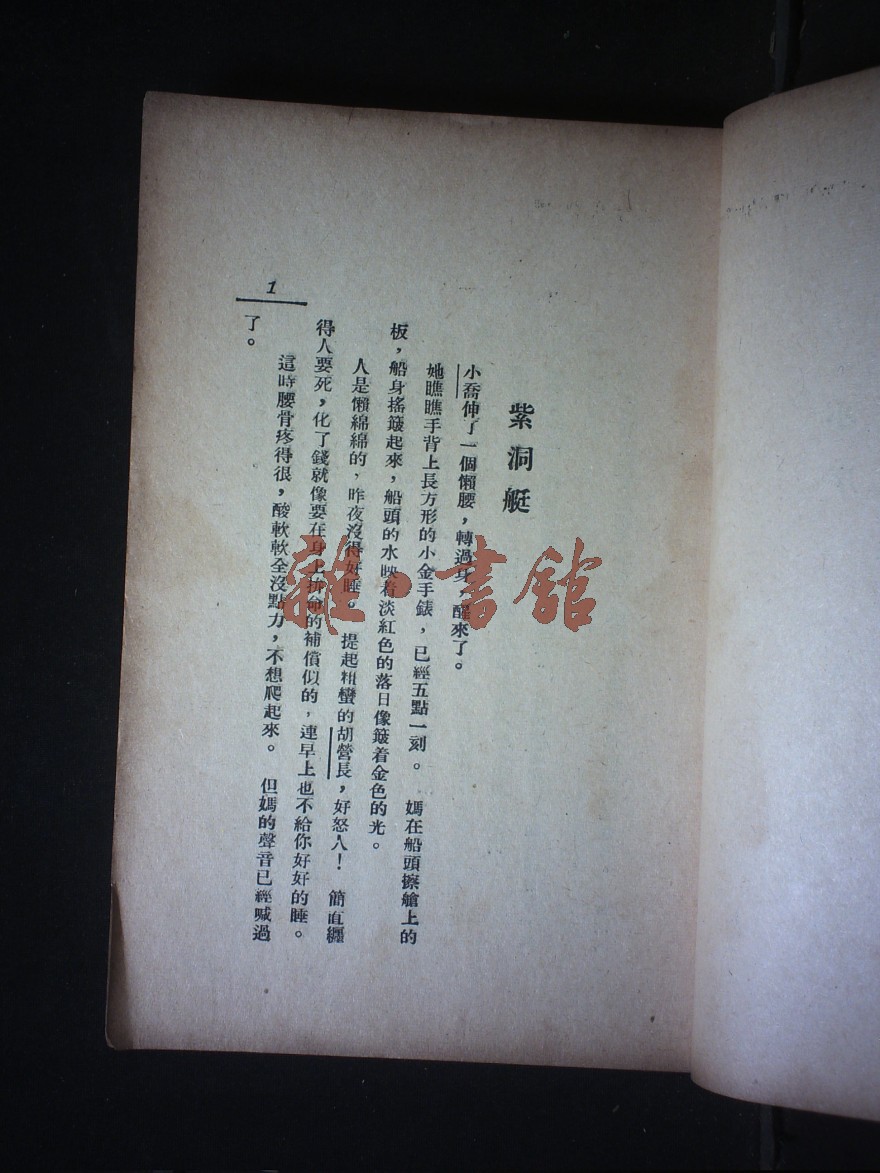 紫洞艇
小喬伸了一個懶腰，轉過身，醒來了。
她瞧瞧手背上長方形的小金手錶，已經五點一刻。　媽在船頭擦艙上的
板，船身搖簸起來，船頭的水映着淡紅色的落日像簸着金色的光。
人是懶綿綿的，昨夜沒得好睡。　提起粗蠻的胡營長，好怒人！　簡直纒
得人要死，化了錢就像要在身上拚命的補償似的，連早上也不給你好好的睡。
這時腰骨疼得很，酸軟軟全沒點力，不想爬起來。　但媽的聲音已經喊過
了。
1
雜·書館